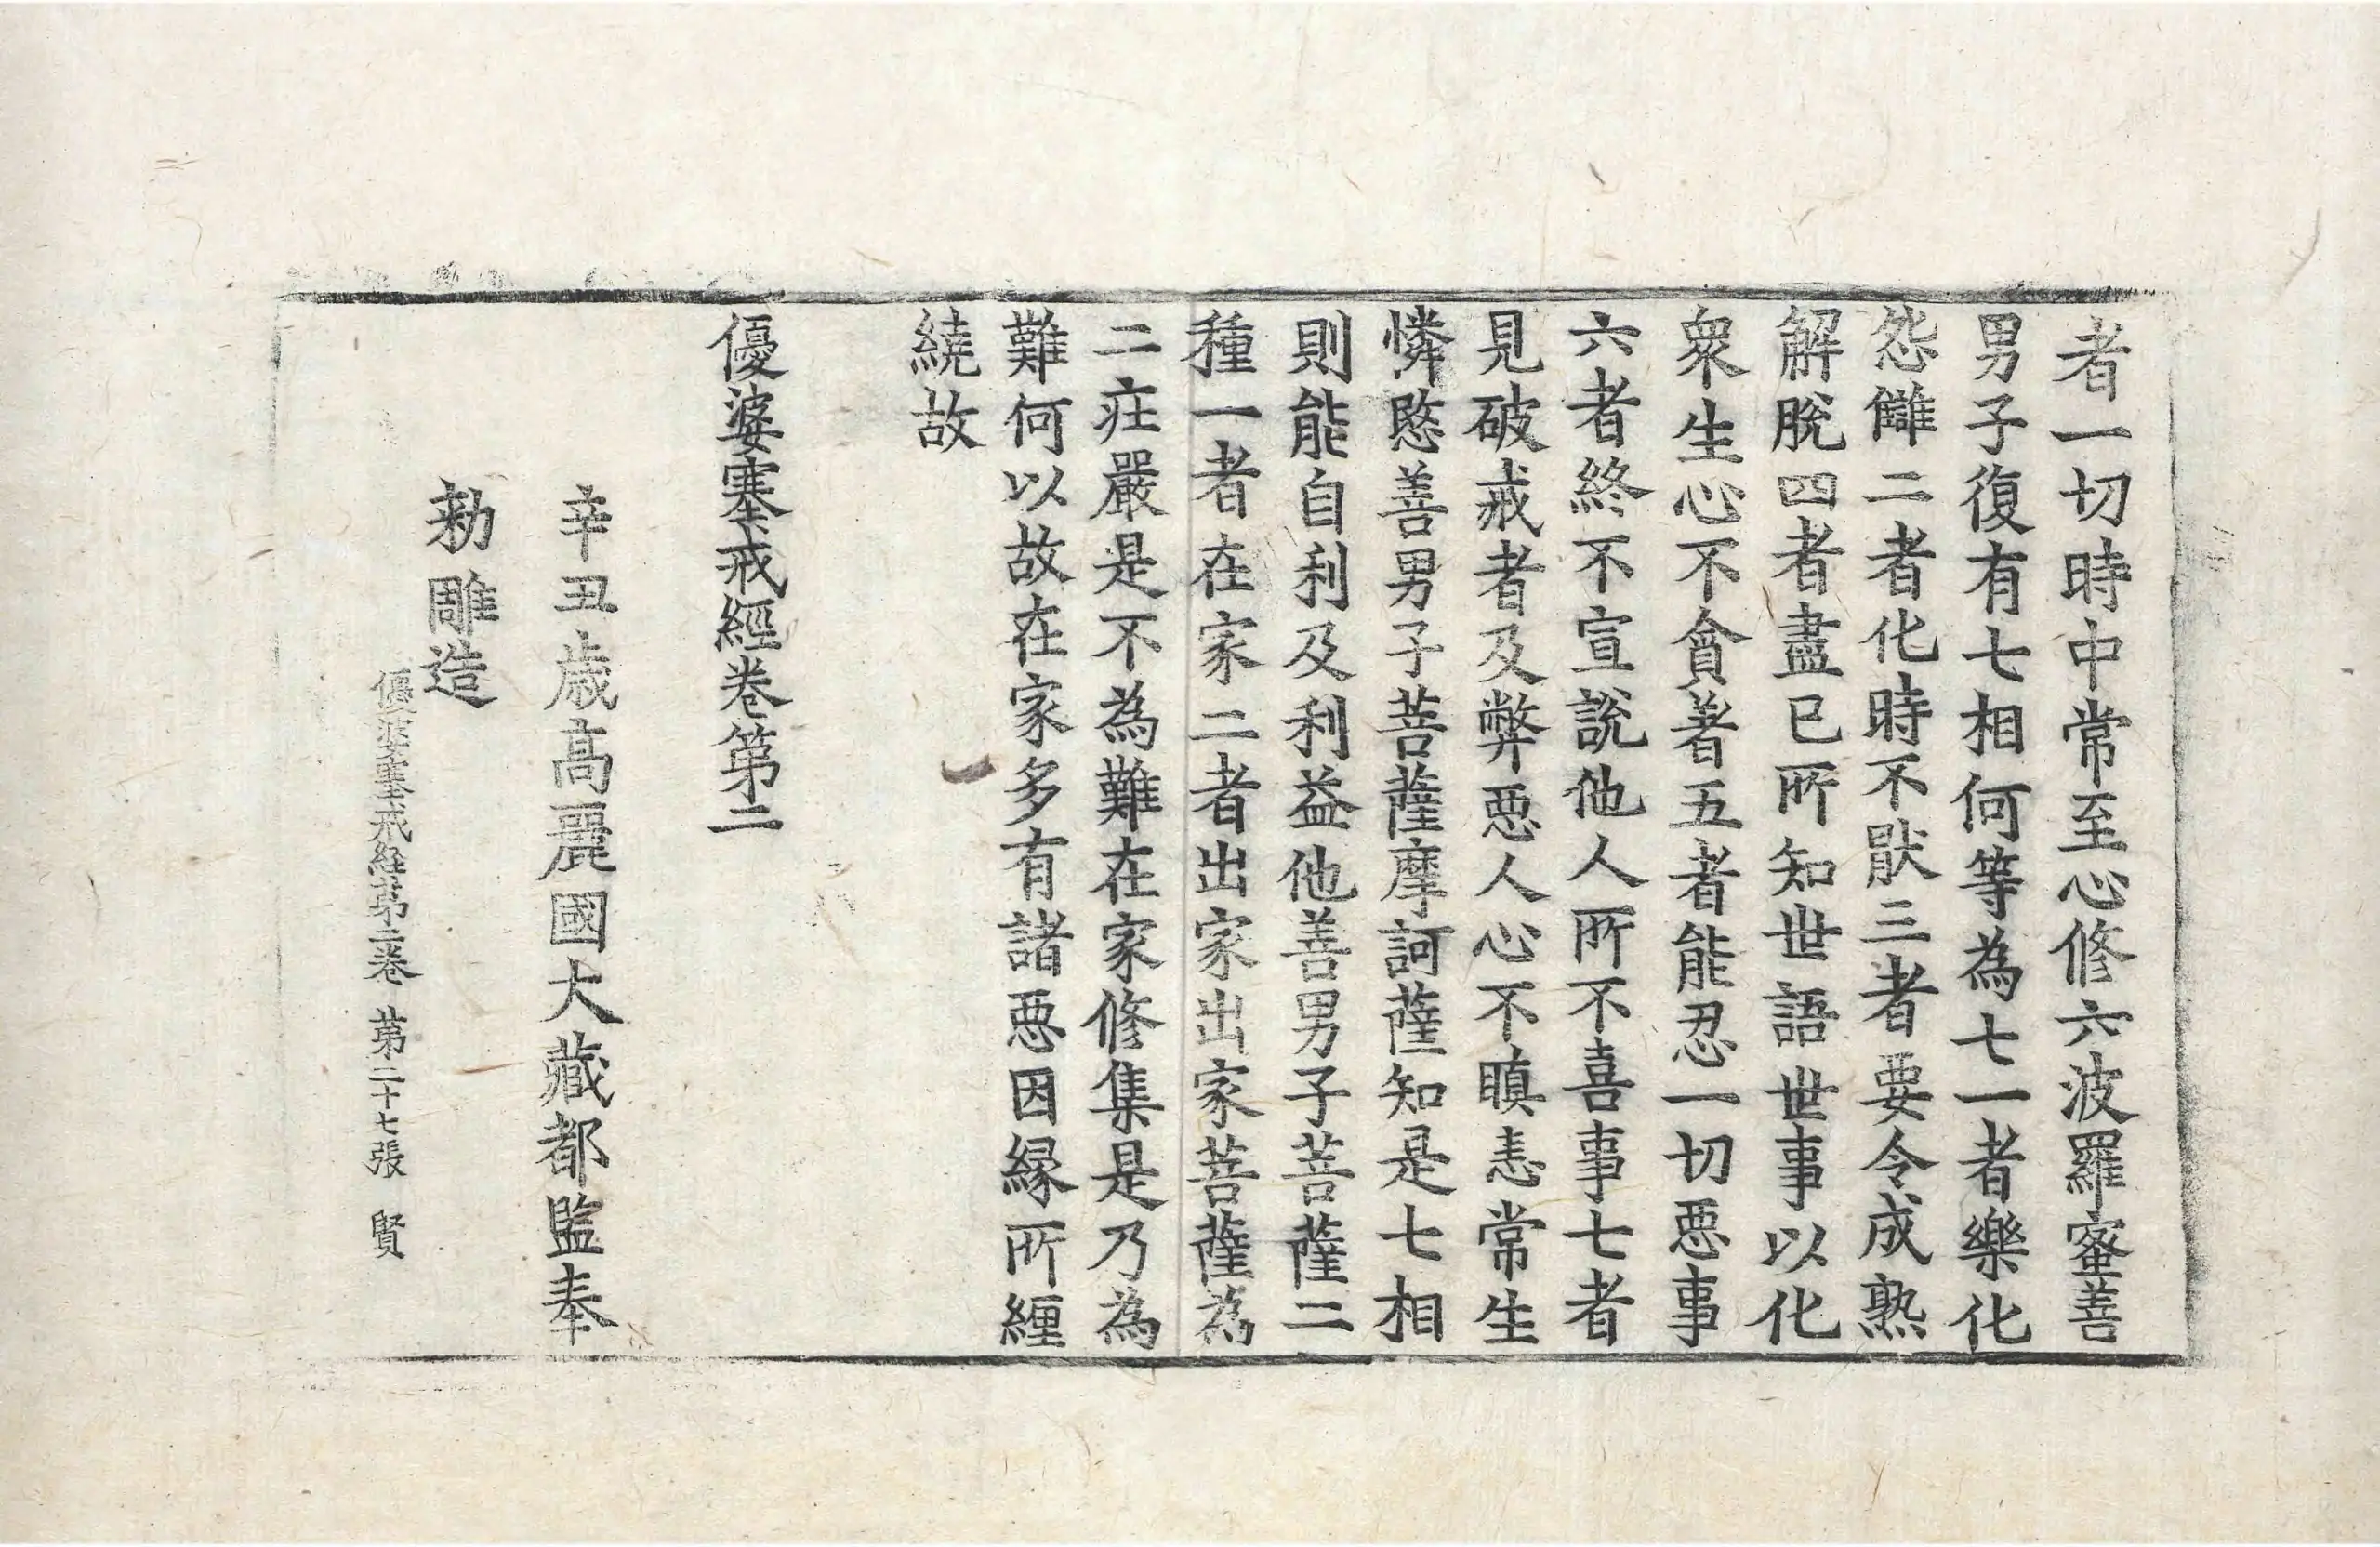 者一切時中常至心修六波羅蜜善
男子復有七相何等為七一者樂化
怨讎二者化時不猒三者要令成熟
解脫四者盡已所知世語世事以化
衆生心不貪著五者能忍一切惡事
六者終不宣說他人所不喜事七者
見破戒者及弊惡人心不瞋恚常生
憐愍善男子菩薩摩訶薩知是七相
則能自利及利益他善男子菩薩二
種一者在家二者出家出家菩薩為
二莊嚴是不為難在家修集是乃為
難何以故在家多有諸惡因緣所纏
繞故
優婆塞戒經卷第二
辛丑歲高麗國大藏都監奉
勅雕造
優婆塞戒経第二卷 第二十七張 賢